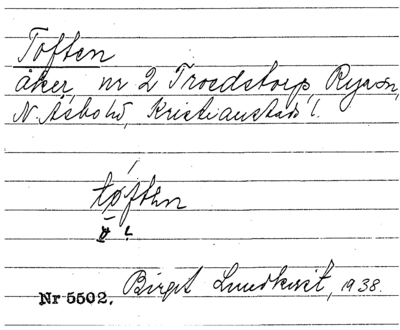 Toften
åker, nr 2 Troedstorp, Rya sn,
N. Åsbo hd, Kristianstads l.
tøften
Nr 5502. Birgit Lundkvist, 1938.